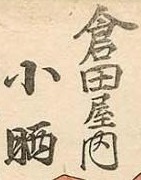 倉田屋内
小晒